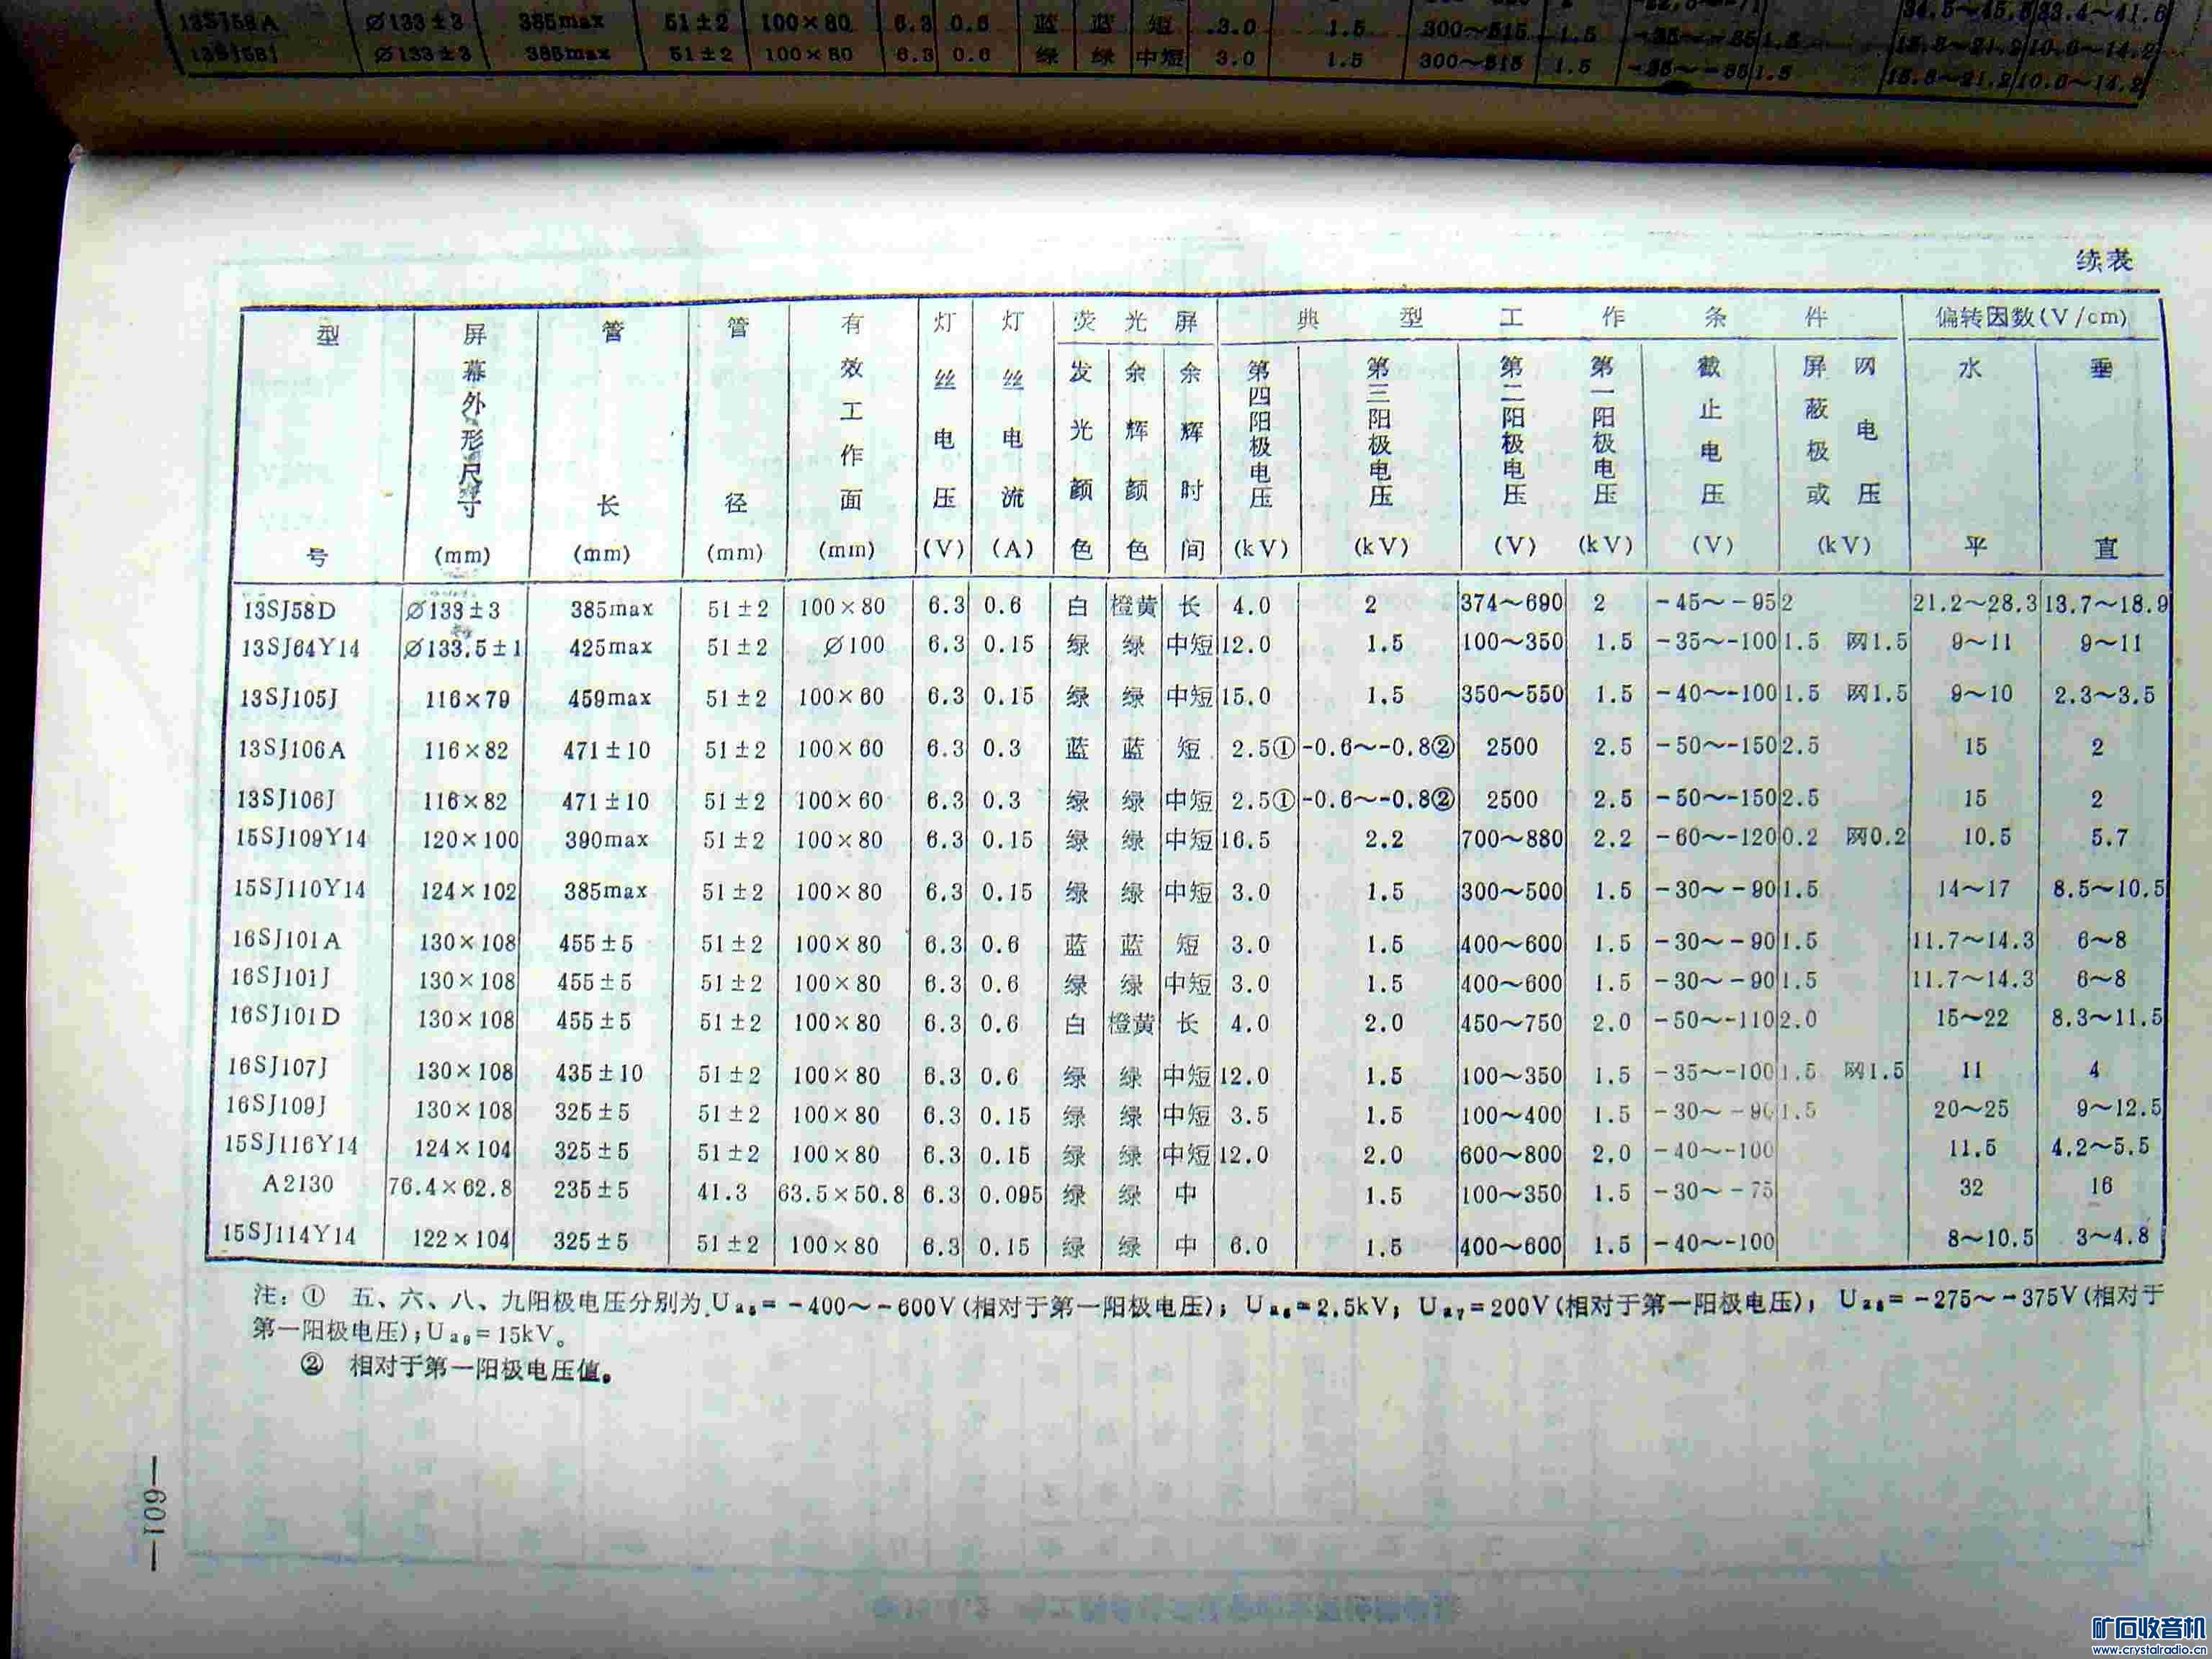 13SJ58A ∅133±3 385max 51±2 100×80 6.3 0.6 蓝 蓝 短 3.0 1.5 300～515 1.5 1.5 15.8～21.2 10.6～14.2
13SJ58J ∅133±3 385max 51±2 100×80 6.3 0.6 绿 绿 中短 3.0 1.5 300～515 1.5 1.5 15.8～21.2 10.6～14.2
续表
型号 屏幕外形尺寸(mm) 管长(mm) 管径(mm) 有效工作面(mm) 灯丝电压(V) 灯丝电流(A) 荧光屏 发光颜色 余辉颜色 余辉时间 典型工作条件 第四阳极电压(kV) 第三阳极电压(kV) 第二阳极电压(V) 第一阳极电压(kV) 截止电压(V) 屏蔽极或网电压(kV) 偏转因数(V/cm) 水平 垂直
13SJ58D ∅133±3 385max 51±2 100×80 6.3 0.6 白 橙黄 长 4.0 2 374～690 2 -45～-95 2 21.2～28.3 13.7～18.9
13SJ64Y14 ∅133.5±1 425max 51±2 ∅100 6.3 0.15 绿 绿 中短 12.0 1.5 100～350 1.5 -35～-100 1.5 网1.5 9～11 9～11
13SJ105J 116×79 459max 51±2 100×60 6.3 0.15 绿 绿 中短 15.0 1.5 350～550 1.5 -40～-100 1.5 网1.5 9～10 2.3～3.5
13SJ106A 116×82 471±10 51±2 100×60 6.3 0.3 蓝 蓝 短 2.5① -0.6～-0.8② 2500 2.5 -50～-150 2.5 15 2
13SJ106J 116×82 471±10 51±2 100×60 6.3 0.3 绿 绿 中短 2.5① -0.6～-0.8② 2500 2.5 -50～-150 2.5 15 2
15SJ109Y14 120×100 390max 51±2 100×80 6.3 0.15 绿 绿 中短 16.5 2.2 700～880 2.2 -60～-120 0.2 网0.2 10.5 5.7
15SJ110Y14 124×102 385max 51±2 100×80 6.3 0.15 绿 绿 中短 3.0 1.5 300～500 1.5 -30～-90 1.5 14～17 8.5～10.5
16SJ101A 130×108 455±5 51±2 100×80 6.3 0.6 蓝 蓝 短 3.0 1.5 400～600 1.5 -30～-90 1.5 11.7～14.3 6～8
16SJ101J 130×108 455±5 51±2 100×80 6.3 0.6 绿 绿 中短 3.0 1.5 400～600 1.5 -30～-90 1.5 11.7～14.3 6～8
16SJ101D 130×108 455±5 51±2 100×80 6.3 0.6 白 橙黄 长 4.0 2.0 450～750 2.0 -50～-110 2.0 15～22 8.3～11.5
16SJ107J 130×108 435±10 51±2 100×80 6.3 0.6 绿 绿 中短 12.0 1.5 100～350 1.5 -35～-100 1.5 网1.5 11 4
16SJ109J 130×108 325±5 51±2 100×80 6.3 0.15 绿 绿 中短 3.5 1.5 100～400 1.5 -30～-90 1.5 20～25 9～12.5
15SJ116Y14 124×104 325±5 51±2 100×80 6.3 0.15 绿 绿 中短 12.0 2.0 600～800 2.0 -40～-100 11.5 4.2～5.5
A2130 76.4×62.8 235±5 41.3 63.5×50.8 6.3 0.095 绿 绿 中 1.5 100～350 1.5 -30～-75 32 16
15SJ114Y14 122×104 325±5 51±2 100×80 6.3 0.15 绿 绿 中 6.0 1.5 400～600 1.5 -40～-100 8～10.5 3～4.8
注：① 五、六、八、九阳极电压分别为Ua₅=-400～-600V(相对于第一阳极电压)；Ua₆=2.5kV；Ua₇=200V(相对于第一阳极电压)，Ua₈=-275～-375V(相对于
第一阳极电压)；Ua₉=15kV。
② 相对于第一阳极电压值。
—601—
矿石收音机
www.crystalradio.cn